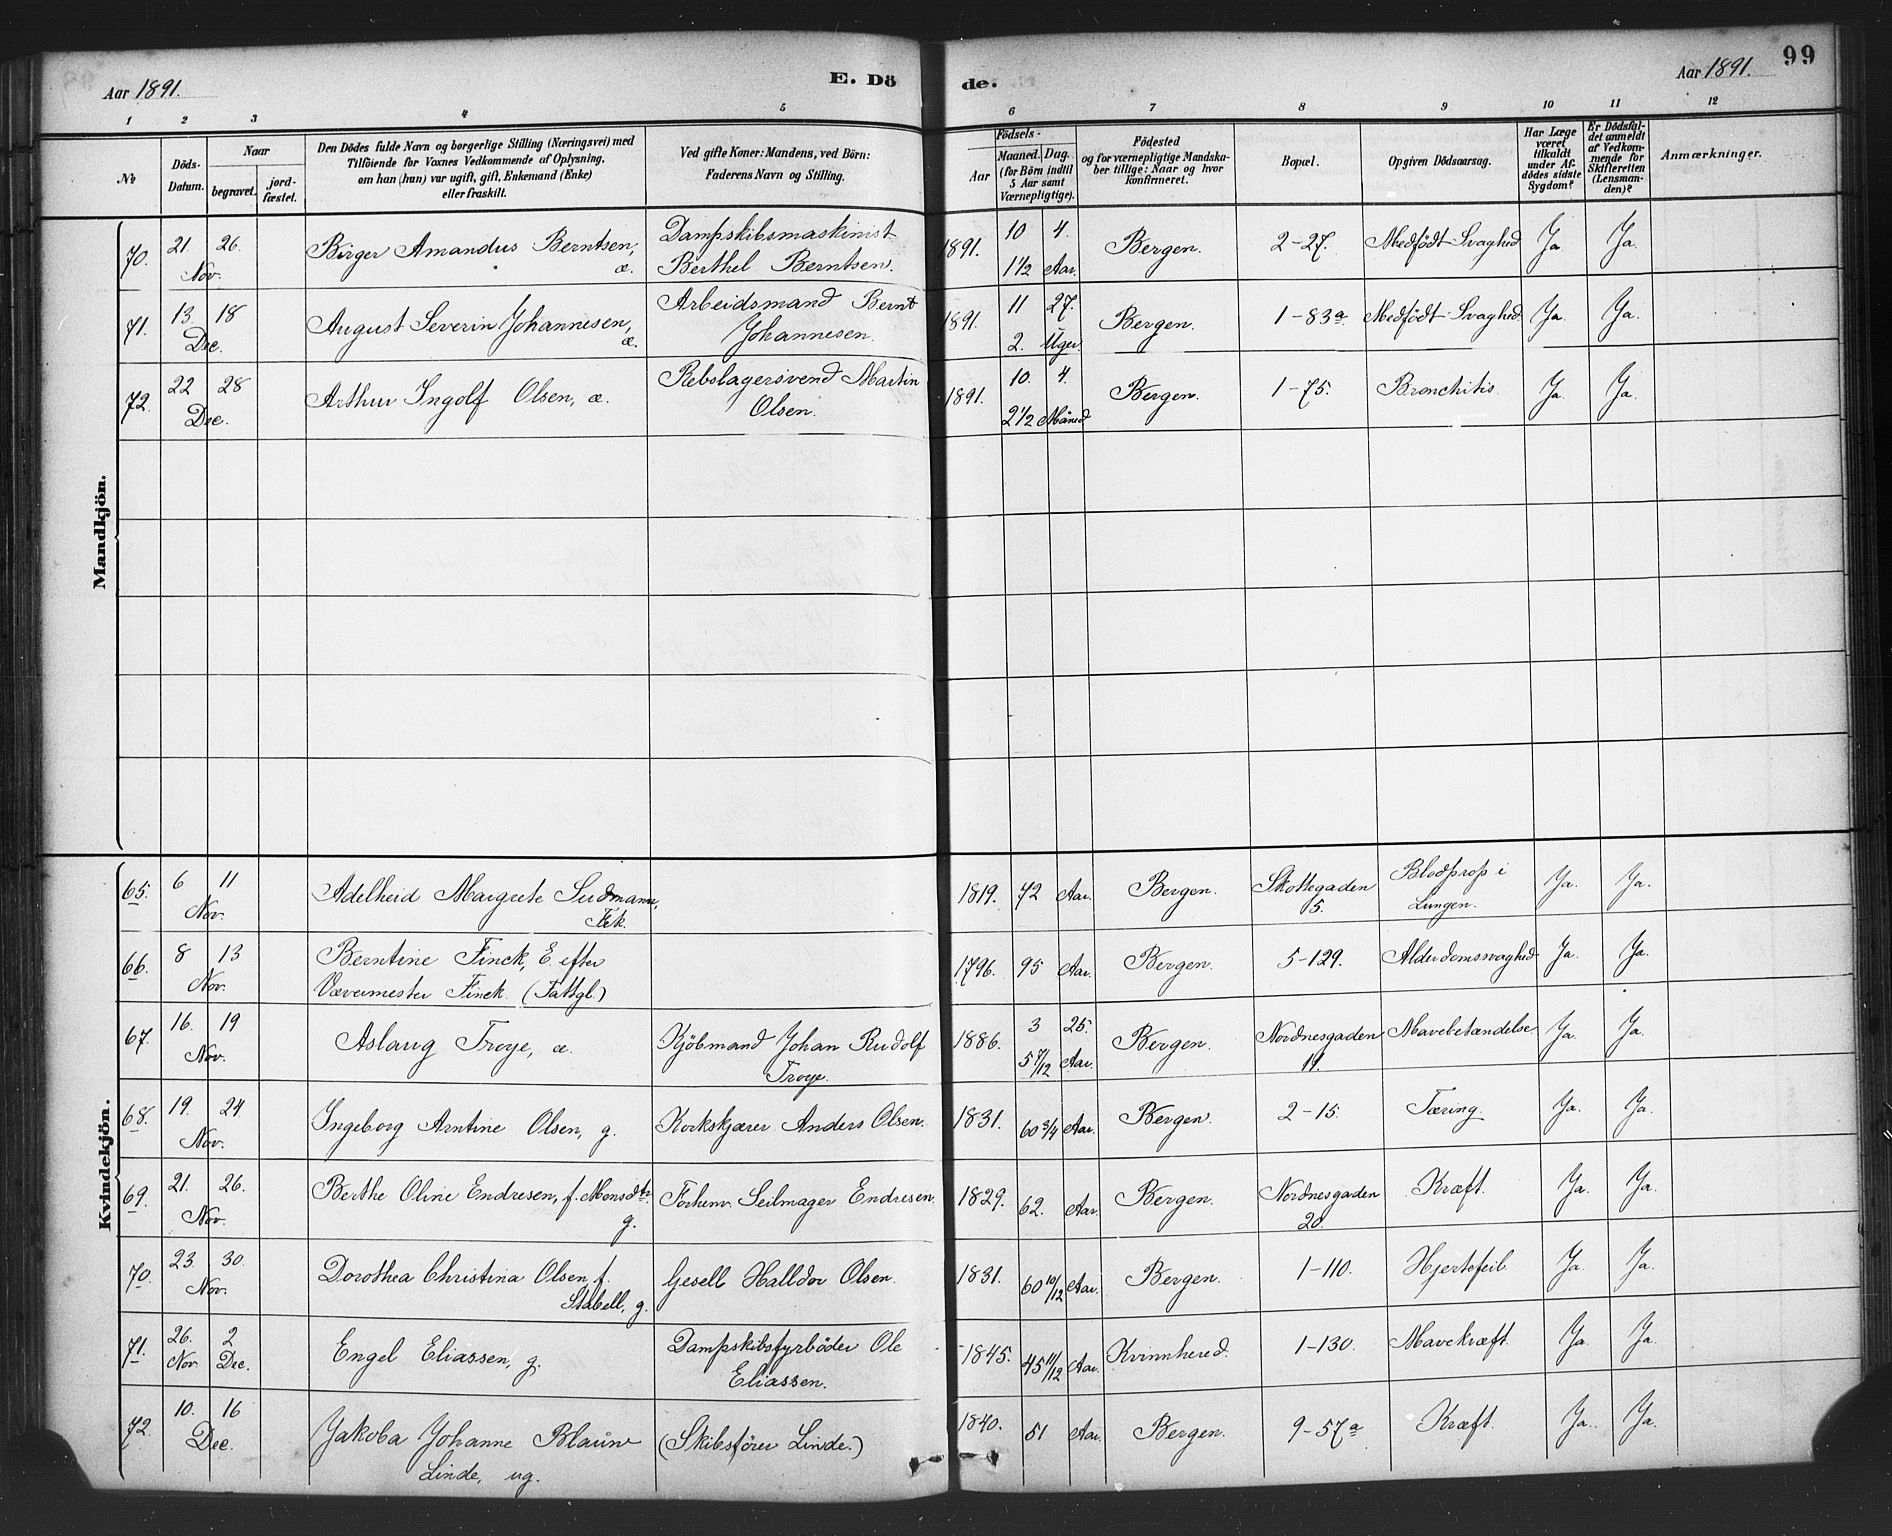 Aar 1891.
E. Dö
de.
Aar 1891.
99
1 2 3 4 5 6 7 8 9 10 11 12
No
Döds-
Datum.
Naar
begravet.
jord-
fæstet.
Den Dödes fulde Navn og borgerlige Stilling (Næringsvei) med
Tilföiende for Voxnes Vedkommende af Oplysning,
om han (hun) var ugift, gift, Enkemand (Enke)
eller fraskilt.
Ved gifte Koner: Mandens, ved Börn:
Faderens Navn og Stilling.
Födsels-
Aar
Maaned. Dag.
(for Börn indtil
5 Aar samt
Værnepligtige).
Födested
og for værnepligtige Mandska-
ber tillige: Naar og hvor
konfirmeret.
Bopæl.
Opgiven Dödsaarsag.
Har Læge
været
tilkaldt
under Af-
dödes sidste
Sygdom?
Er Dödsfal-
det anmeldt
af Vedkom-
mende for
Skifteretten
(Lensman-
den)?
Anmærkninger.
Mandkjön.
70. 21. 26. Nov. Birger Amandus Berntsen, æ. Dampskibsmaskinist Berthel Berntsen. 1891. 10 4. 1 1/2 Aar. Bergen. 2-27. Medfödt Svaghed Ja. Ja.
71. 13. 18 Dec. August Severin Johannesen, æ. Arbeidsmand Bernt Johannesen. 1891. 11 27. 2. Uger. Bergen. 1-83a. Medfödt Svaghed. Ja. Ja.
72. 22 28 Dec. Arthur Ingolf Olsen, æ. Rebslagersvend Martin Olsen. 1891. 10. 4. 2 1/2 Måned Bergen. 1-75. Bronchitis. Ja. Ja.
Kvindekjön.
65. 6 11 Nov. Adelheid Margrete Sudmann, Frk. 1819. 72 Aar. Bergen. Skottegaden 15. Blodprop i Lungen. Ja. Ja.
66. 8 13 Nov. Berntine Finck, E. efter Vævermester Finck. (Fattgl.) 1796. 95 Aar. Bergen. 5-129. Alderdomssvaghed Ja. Ja.
67. 16. 19 Nov. Aslaug Troye, æ. Kjöbmand Johan Rudolf Troye. 1886. 3 25. 5 7/12 Aar. Bergen. Nordnesgaden 11. Mavebetændelse Ja. Ja.
68. 19. 24. Nov. Ingeborg Arntine Olsen, g. Korkskjærer Anders Olsen. 1831. 60 3/4 Aar. Bergen. 2-15. Tæring. Ja. Ja.
69. 21. 26. Nov. Berthe Oline Endresen, f. Monsdtr. g. Forhenv. Seilmager Endresen. 1829. 62. Aar. Bergen. Nordnesgaden 20. Kræft. Ja. Ja.
70. 23. 30. Nov. Dorothea Christina Olsen, f. Stabell, g. Gesell Halldor Olsen. 1831. 60 10/12 Aar. Bergen. 1-110. Hjertefeil. Ja. Ja.
71. 26. Nov. 2 Dec. Engel Eliassen, g. Dampskibsfyrböder Ole Eliassen. 1845. 45 11/12 Aar. Kvinnhered. 1-130. Mavekræft. Ja. Ja.
72. 10. 16 Dec. Jakoba Johanne Linde, ug. (Skibsförer Linde.) 1840. 51 Aar. Bergen. 9-57a. Kræft. Ja. Ja.